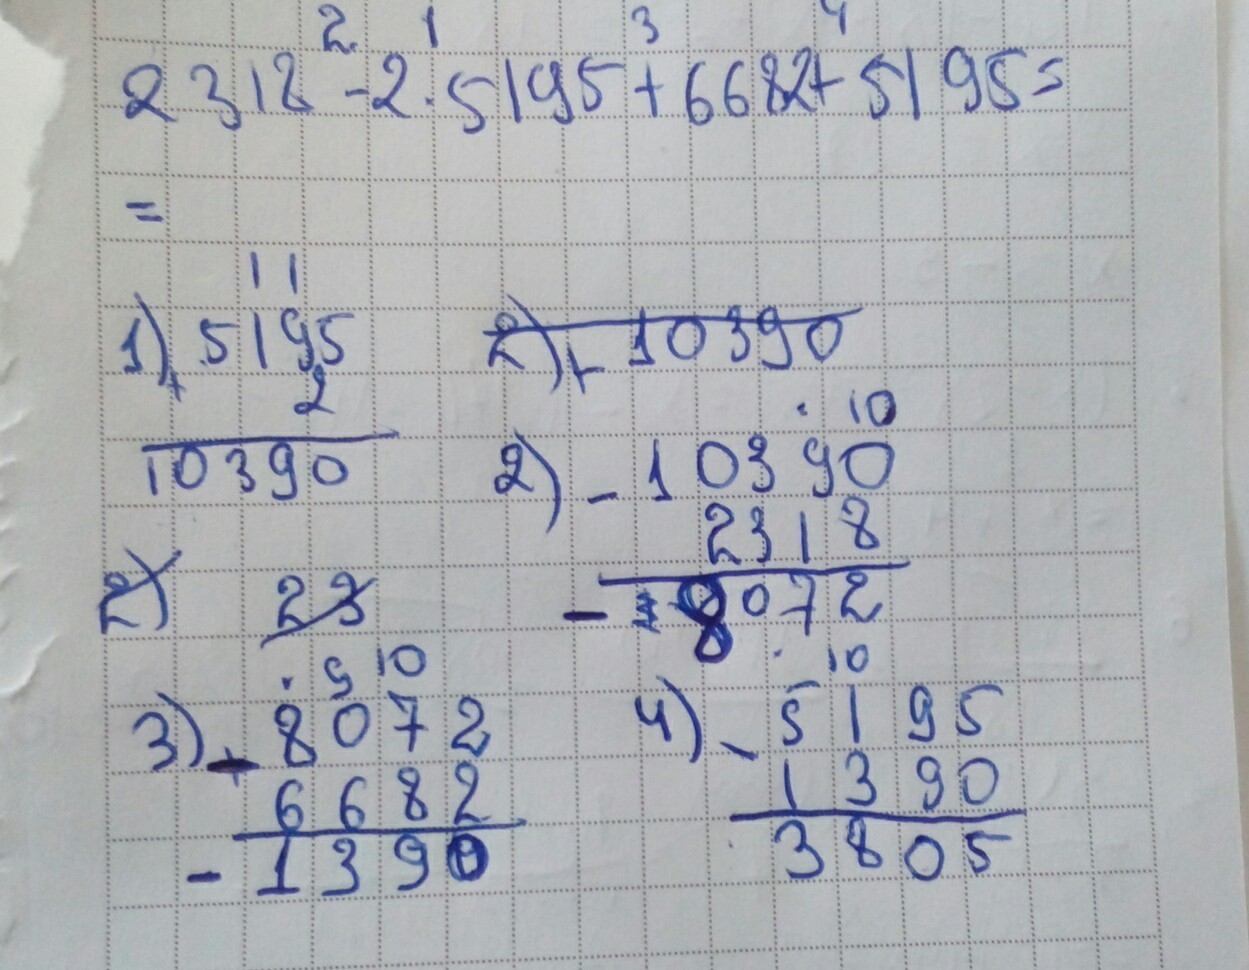 2 1 3 4
2318-2·5195+6682+5195=
=
11
1) + 5195
2
10390
2) + 10390
· 10
2) - 10390
2318
- 8072
2) 23
· 9 10
3) - 8072
6682
- 1390
· 10
4) - 5195
1390
3805